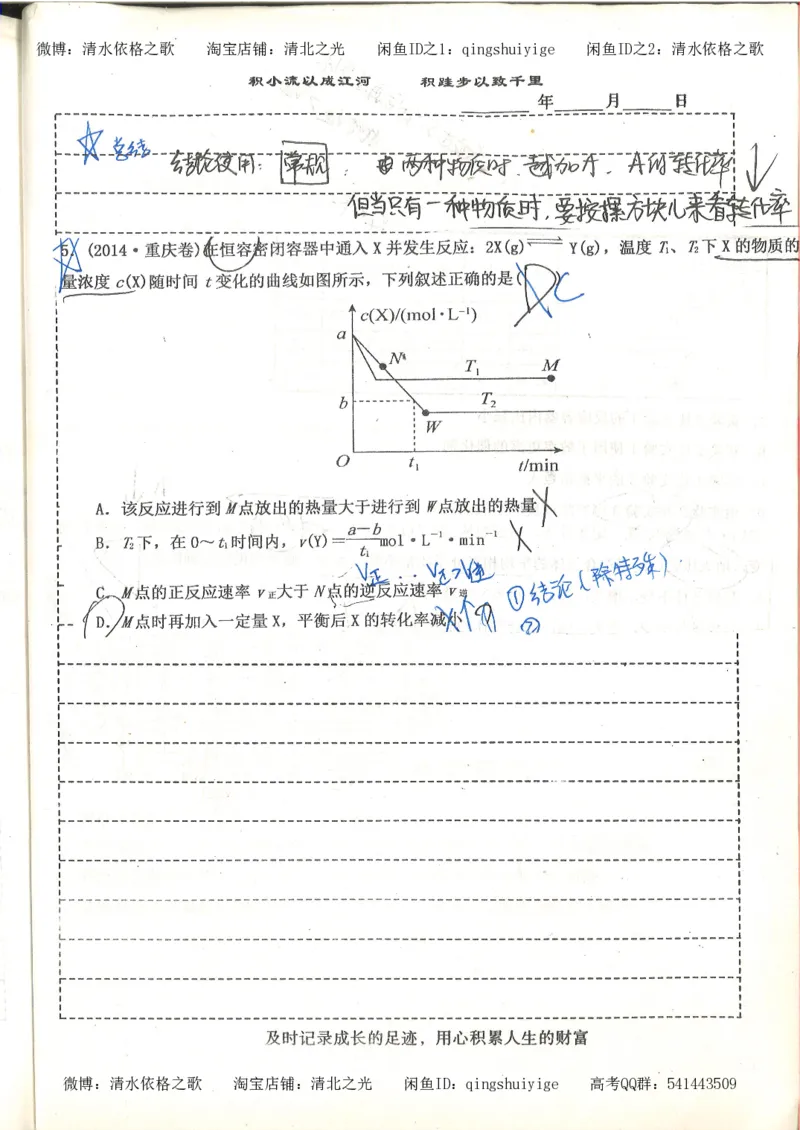 微博：清水依格之歌 淘宝店铺：清北之光 闲鱼ID之1：qingshuiyige 闲鱼ID之2：清水依格之歌
积小流以成江河 积跬步以致千里
年 月 日
总结
结论使用：常规：由两种物质时，越加A，A的转化率↓
但当只有一种物质时，要按摆方块儿来看转化率
5. (2014·重庆卷)在恒容密闭容器中通入 X 并发生反应：2X(g)⇌Y(g)，温度 T₁、T₂下 X 的物质的
量浓度 c(X)随时间 t 变化的曲线如图所示，下列叙述正确的是( D ) C
c(X)/(mol·L⁻¹)
a
N
T₁ M
b
T₂
W
O t₁ t/min
A. 该反应进行到 M 点放出的热量大于进行到 W 点放出的热量 X
B. T₂下，在 0～t₁时间内，v(Y)=(a−b)/t₁ mol·L⁻¹·min⁻¹ X
V正 . . V正>V逆
C. M 点的正反应速率 v正大于 N 点的逆反应速率 v逆
①结论(除特殊)
D. M 点时再加入一定量 X，平衡后 X 的转化率减小 X
②
及时记录成长的足迹，用心积累人生的财富
微博：清水依格之歌 淘宝店铺：清北之光 闲鱼ID：qingshuiyige 高考QQ群：541443509